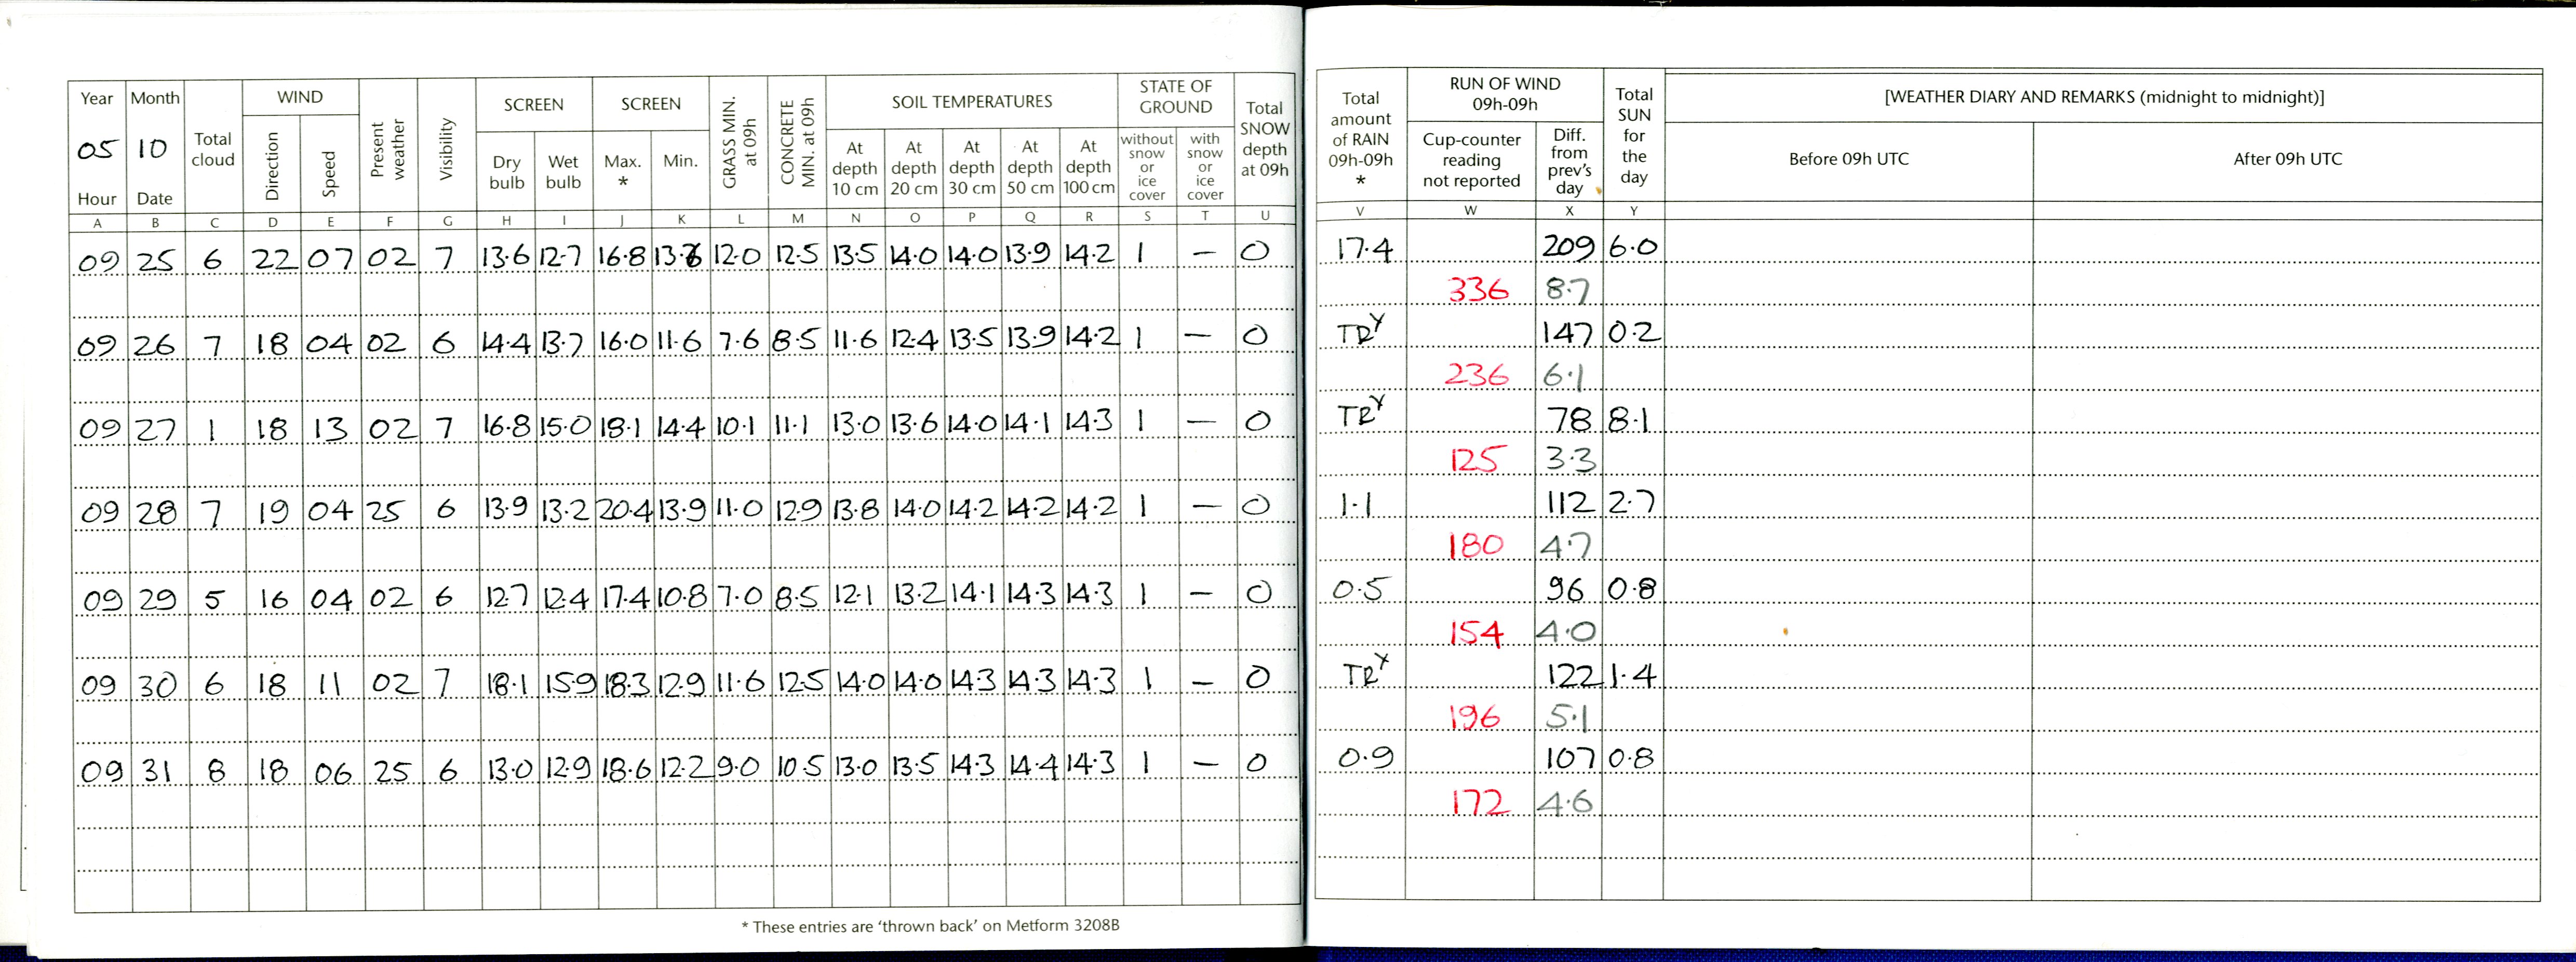 Year Month Total cloud WIND Present weather Visibility SCREEN SCREEN GRASS MIN. at 09h CONCRETE MIN. at 09h SOIL TEMPERATURES STATE OF GROUND Total SNOW depth at 09h Total amount of RAIN 09h-09h * RUN OF WIND 09h-09h Total SUN for the day [WEATHER DIARY AND REMARKS (midnight to midnight)]
05 10
Hour Date Direction Speed Dry bulb Wet bulb Max. * Min. At depth 10 cm At depth 20 cm At depth 30 cm At depth 50 cm At depth 100 cm without snow or ice cover with snow or ice cover Cup-counter reading not reported Diff. from prev's day Before 09h UTC After 09h UTC
A B C D E F G H I J K L M N O P Q R S T U V W X Y
09 25 6 22 07 02 7 13.6 12.7 16.8 13.6 12.0 12.5 13.5 14.0 14.0 13.9 14.2 1 — 0 17.4 209 6.0
336 8.7
09 26 7 18 04 02 6 14.4 13.7 16.0 11.6 7.6 8.5 11.6 12.4 13.5 13.9 14.2 1 — 0 TRY 147 0.2
236 6.1
09 27 1 18 13 02 7 16.8 15.0 18.1 14.4 10.1 11.1 13.0 13.6 14.0 14.1 14.3 1 — 0 TRY 78 8.1
125 3.3
09 28 7 19 04 25 6 13.9 13.2 20.4 13.9 11.0 12.9 13.8 14.0 14.2 14.2 14.2 1 — 0 1.1 112 2.7
180 4.7
09 29 5 16 04 02 6 12.7 12.4 17.4 10.8 7.0 8.5 12.1 13.2 14.1 14.3 14.3 1 — 0 0.5 96 0.8
154 4.0
09 30 6 18 11 02 7 18.1 15.9 18.3 12.9 11.6 12.5 14.0 14.0 14.3 14.3 14.3 1 — 0 TRY 122 1.4
196 5.1
09 31 8 18 06 25 6 13.0 12.9 18.6 12.2 9.0 10.5 13.0 13.5 14.3 14.4 14.3 1 — 0 0.9 107 0.8
172 4.6
* These entries are ‘thrown back’ on Metform 3208B